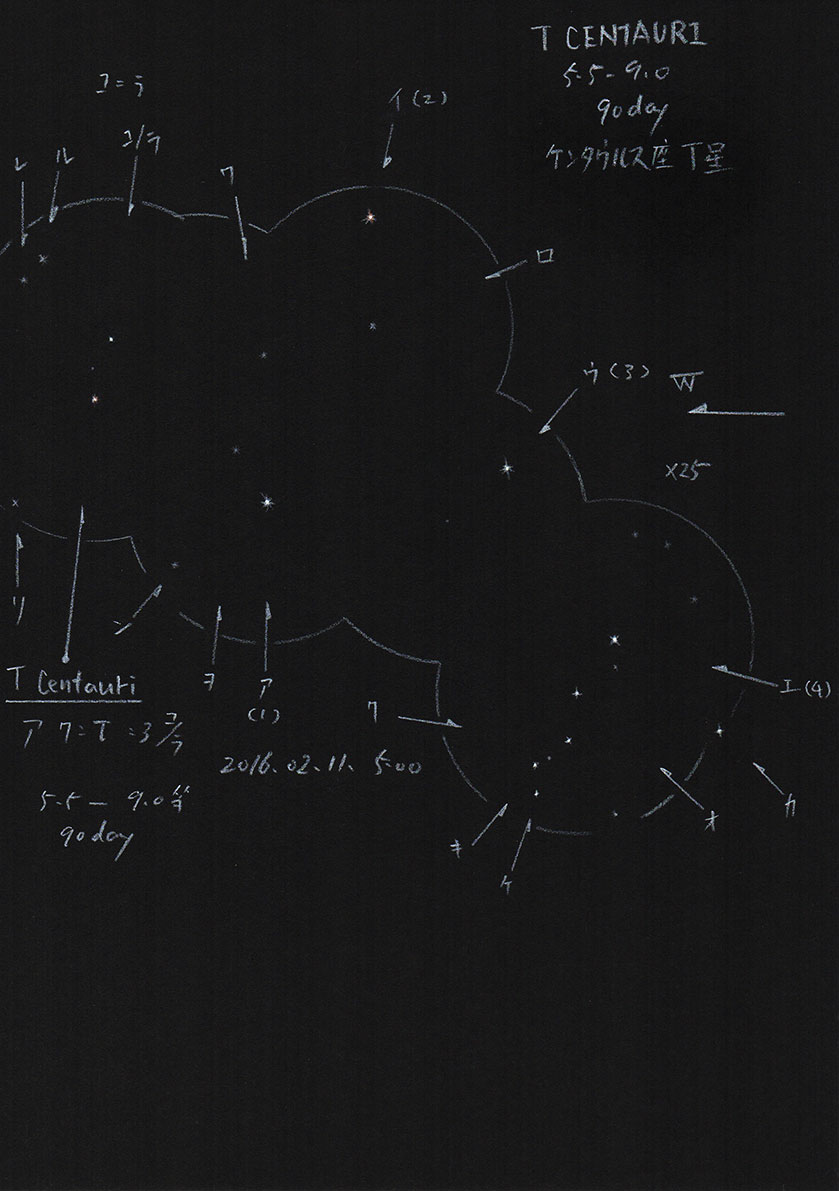 T CENTAURI
5.5 - 9.0
90day
ケンタウルス座 T星
コ=ラ
イ(2)
レ
ル
コ/ラ
ク
ロ
ウ(3)
W
×25
リ
ン
ヲ
ア
(1)
エ(4)
T Centauri
ク
2016.02.11. 5:00
5.5 - 9.0等
90day
カ
オ
キ
ケ